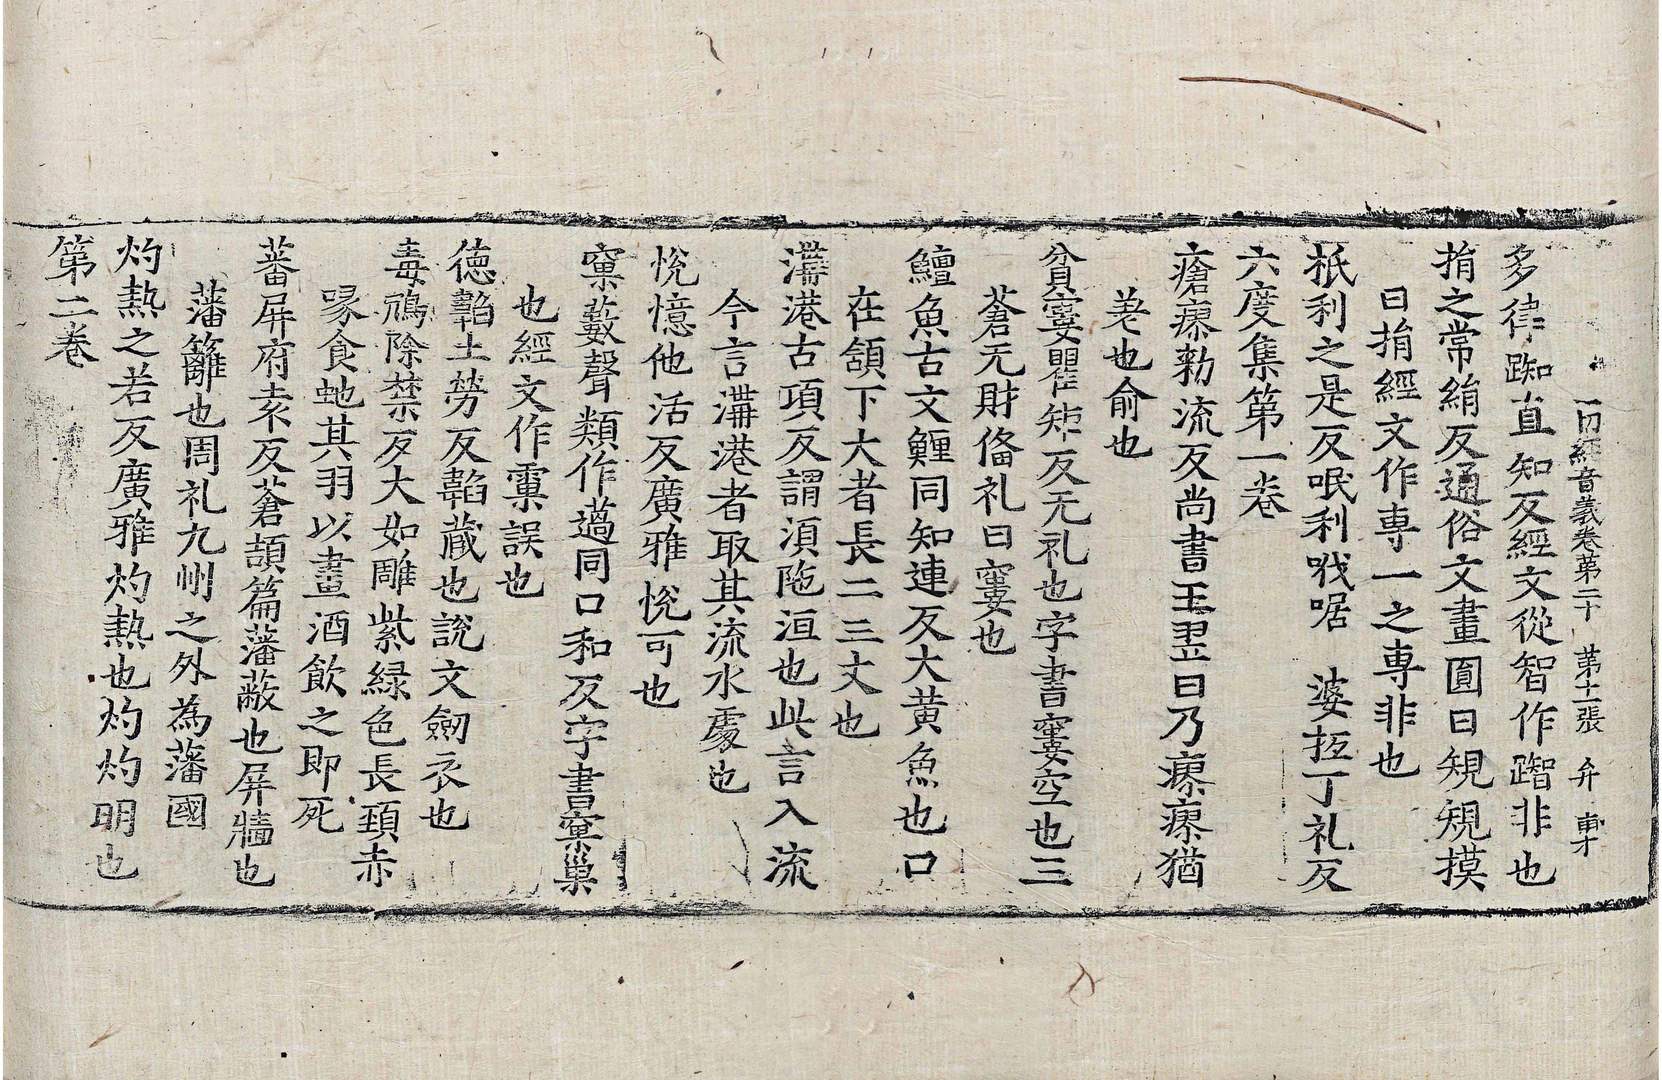 一切經音義卷第二十 第十一張 弁
多律踟直知反經文從智作䠦非也
揹之常絹反通俗文畫圓曰規規摸
曰揹經文作專一之專非也
抵利之是反呡利㖑啹 婆㧉丁礼反
六度集第一卷
瘡瘳勑流反尚書王翌日乃瘳瘳猶
差也俞也
貧寠瞿矩反无礼也字書寠空也三
蒼无財俻礼曰寠也
鱣魚古文鱓同知連反大黄魚也口
在頷下大者長二三丈也
溝港古項反謂湏陁洹也此言入流
今言溝港者取其流水處也
悅憶他活反廣雅悅可也
窠藪聲類作薖同口和反字書窠巢
也經文作窠誤也
德韜土勞反韜藏也說文劒衣也
毒鴆除禁反大如雕紫緑色長頸赤
喙食虵其羽以畫酒飲之即死
蕃屏府袁反蒼頡篇藩蔽也屏牆也
藩籬也周礼九州之外為藩國
灼熱之若反廣雅灼熱也灼灼明也
第二卷